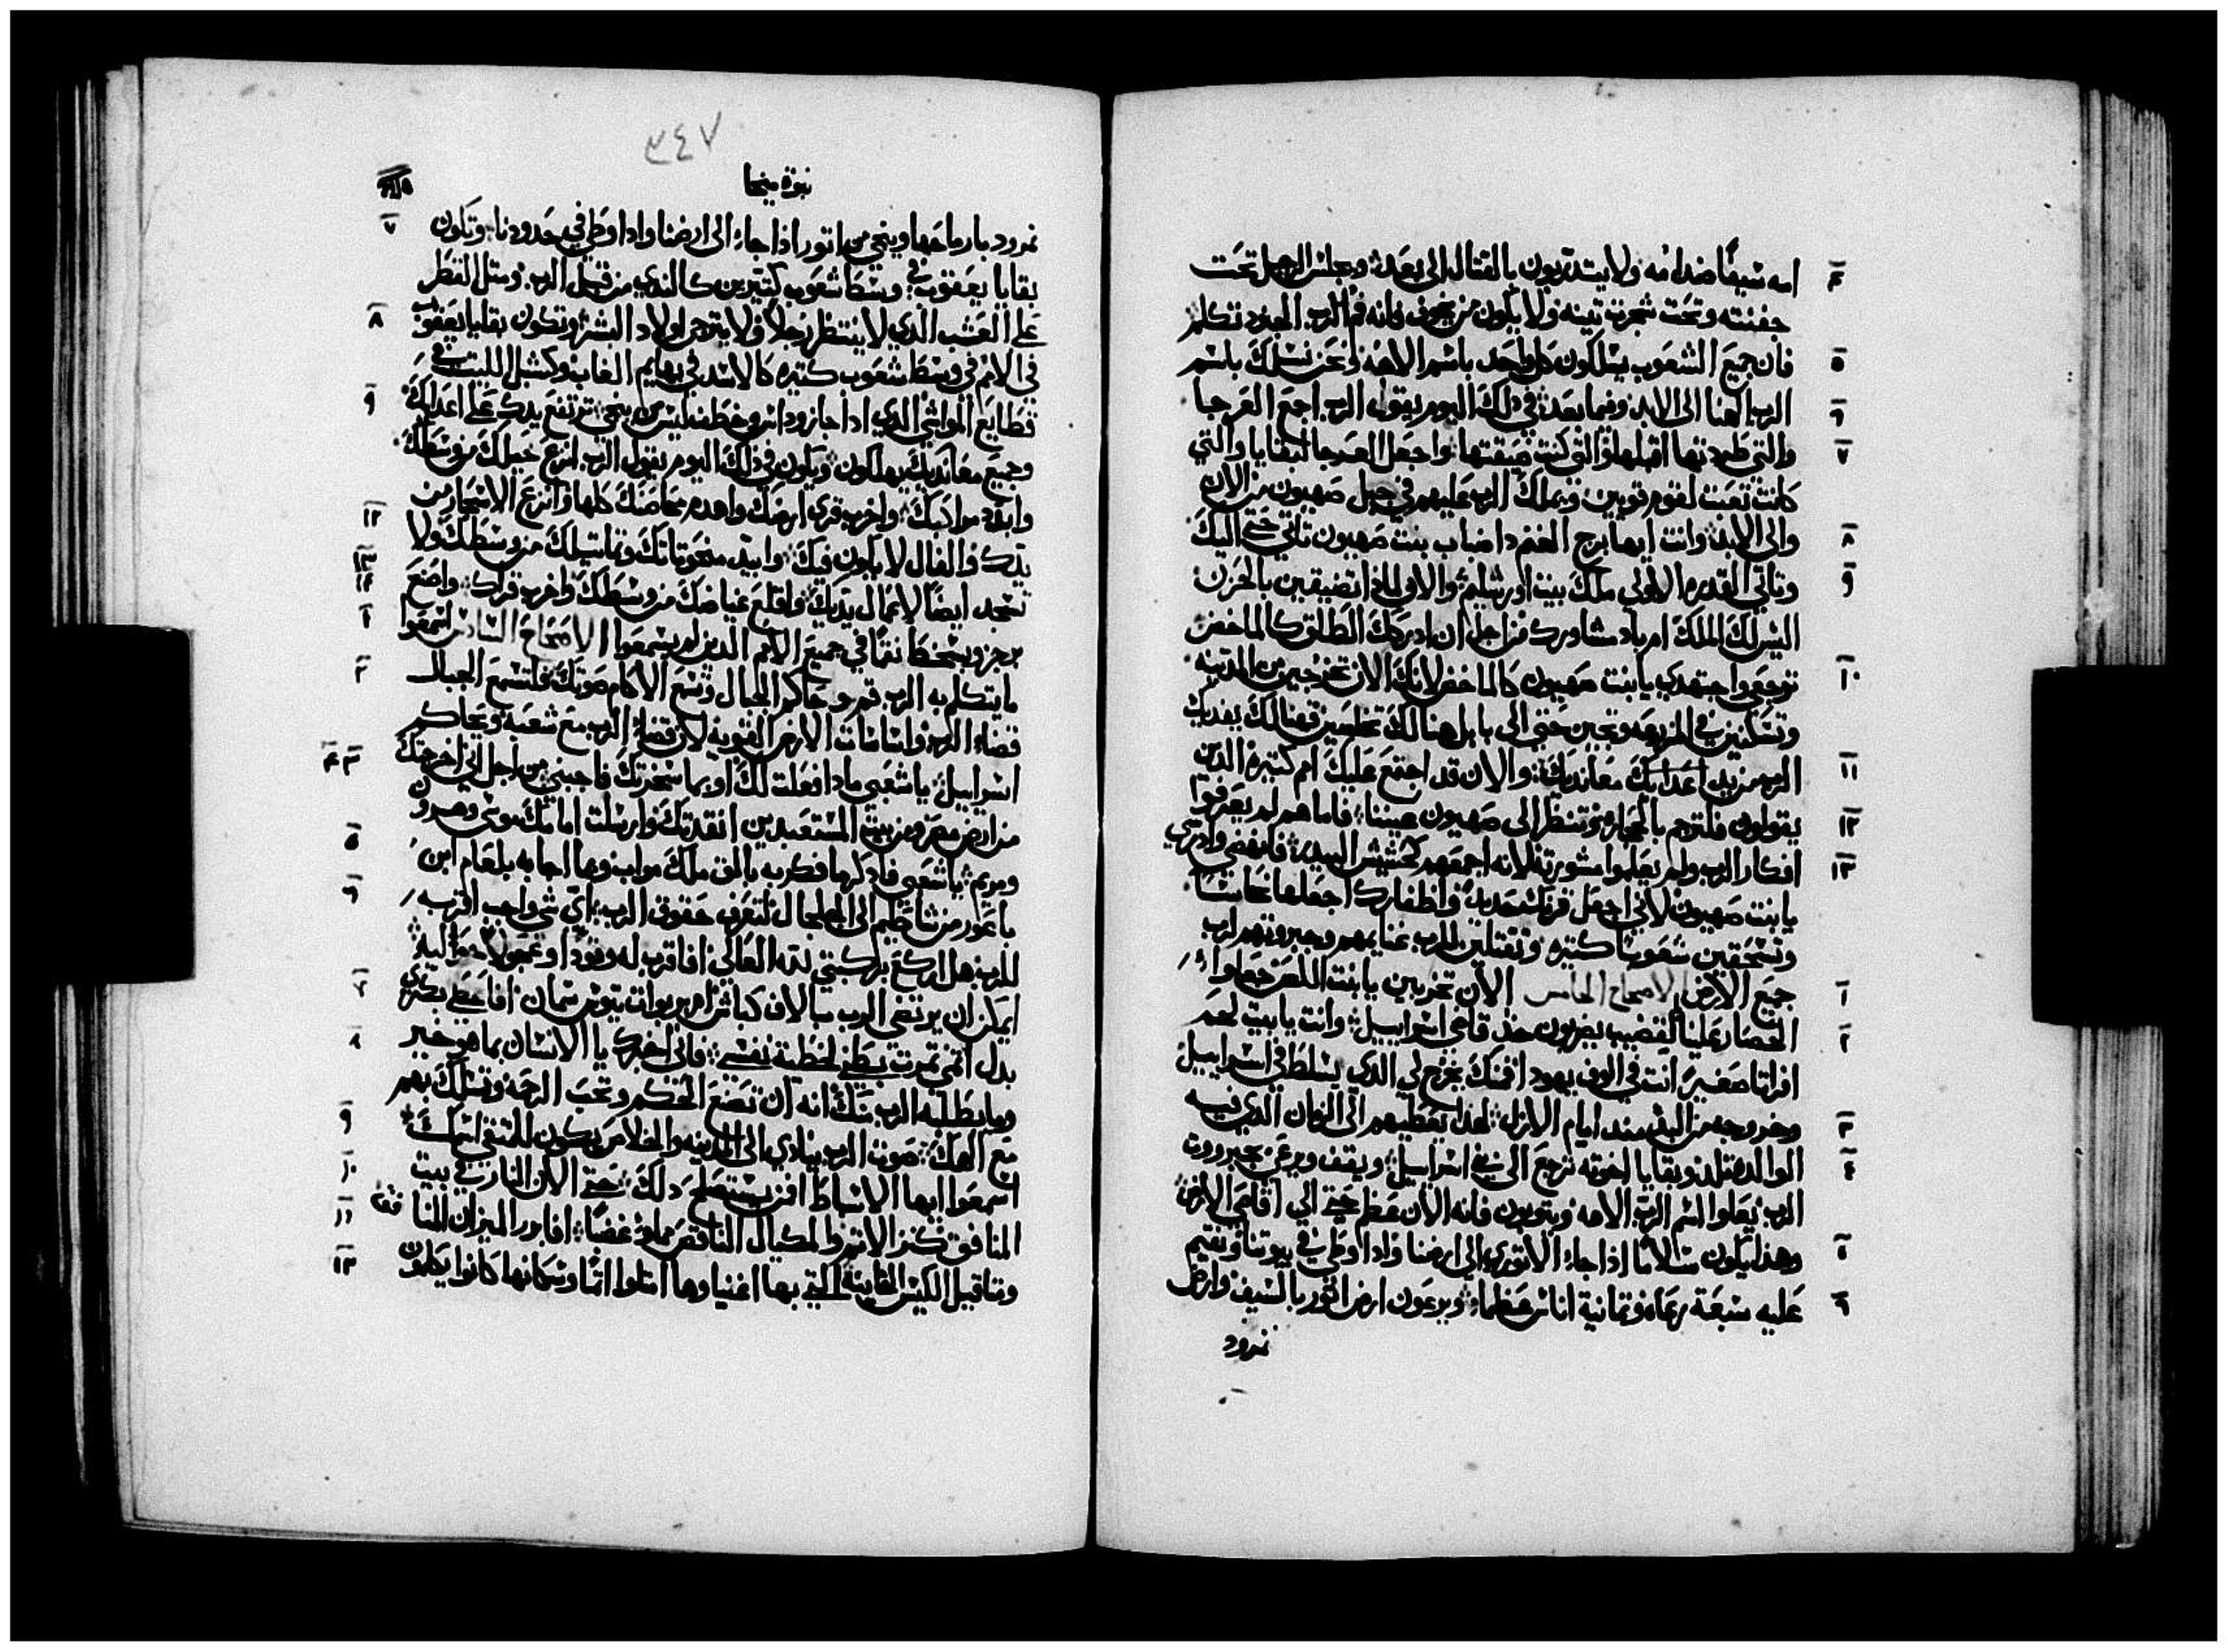 امه سيفًا ضد امه ولا يتدربون بالقتال الى بعد: ويجلس الرجل تحت
جفنته وتحت شجرة تينه ولا يكون من يخوف فانه فم الرب الجنود تكلم
فان جميع الشعوب يسلكون كل واحد باسم الاهه ونحن نسلك باسم
الرب الهنا الى الابد وفيما بعد: في ذلك اليوم يقول الرب اجمع العرجا
والتي طردتها اقبلها والتي كنت ضيقتها: واجعل العرجا لبقايا والتي
كانت تعبت لقوم قويين ويملك الرب عليهم في جبل صهيون من الان
والى الابد: وانت ايها برج الغنم داضباب بنت صهيون تاتي حتى اليك
وتاتي القدره الاولى ملك بيت اورشليم: والان لماذا تضيقين بالحزن
اليس لك الملك ام باد مشاورك من اجل ان ادركك الطلق كالماخض
توجعي واجتهدي يا بنت صهيون كالماخض لانك الان تخرجين من المدينه
وتسكنين في المربعه وتجين حتى الى بابل هنالك تخلصين هنالك يفديك
الرب من يد اعدايك معانديك: والان قد اجتمع عليك امم كتيرة الدين
يقولون فلترجم بالحجاره وتنظر الى صهيون عيننا: فاما هم لم يعرفوا
افكار الرب ولم يعلموا مشورته لانه اجمعهم كحشيش البيدر: فانهضي وادرسي
يا بنت صهيون لاني اجعل قرنك حديد واظفارك اجعلها نحاسًا
وتسحقين شعوبًا كتيره وتقتلين للرب غنايمهم وجبروتهم لرب
جميع الارض الاصحاح الخامس الان تخربين يا بنت اللص جعلوا
الحصار علينا بقضيب يضربون خد قاضي اسراييل: وانت يا بيت لحم
افراتا صغيرة انت في الوف يهودا فمنك يخرج لي الذي يسلط في اسراييل
وخروجه من البدي منذ ايام الازل: لهذا يعطيهم الى الزمان الذي فيه
الوالده تلد وبقايا اخوته ترجع الى بني اسراييل: ويقف ويرعى بجبروت
الرب بعلو اسم الرب الاهه ويتوبون فانه الان عظم حتى الى اقاصي الارض
وهذا يكون سلامًا اذا جاء الاتوري الى ارضنا واذا اوطى في بيوتنا ونقيم
عليه سبعة رعاه وتمانية اناس عظماء: ويرعون ارض اتور بالسيف وارض
نمرود
٣٤٧
نبوة ميخا
نمرود بارماحها وينجي من اتور اذا جاء الى ارضنا واذا وطى في حدودنا: وتكون
بقايا يعقوب في وسط شعوب كتيرين كالندي من قبل الرب ومثل القطر
على العشب الذي لا ينتظر رجلًا ولا يترجى اولاد البشر: وتكون بقايا يعقوب
في الامم في وسط شعوب كتيره كالاسد في بهايم الغاب وكشبل الليت في
قطايع المواشي الذي اذا جاز وداس وخطف ليس من ينجي: ترتفع يدك على اعدايك
وجميع معانديك يهلكون: ويكون في ذلك اليوم يقول الرب انزع خيلك من وسطك
وابيد مراكبك: واخرب قرى ارضك واهدم محاصنك كلها وانزع الاسحار من
يدك والفال لا يكون فيك: وابيد منحوتاتك وتماتيلك من وسطك ولا
تسجد ايضًا لاعمال يديك: واقلع غياضك من وسطك واخرب قراك: واصنع
برجز وبسخط نقمًا في جميع الامم الدين لم يسمعوا الاصحاح السادس اسمعوا
ما يتكلم به الرب قم وحاكم الجبال وتسمع الاكام صوتك: فلتسمع الجبال
قضاء الرب واساسات الارض القويه لان قضاء الرب مع شعبه ويحاكم
اسراييل: يا شعبي ماذا فعلت لك او بما سخرتك فاجبني: من اجل اني اخرجتك
من ارض مصر ومن بيت المستعبدين انقذتك وارسلت امامك موسى وهرون
ومريم: يا شعبي فاذكر ما فكر به بالق ملك مواب وما اجابه بلعام ابن
باعور من شاطيم الى الجلجال لتعرف حقوق الرب: اي شي واجب اقرب
للرب هل اركع بركبتي لله العالي افاقرب له وقودًا وعجولًا حوليه:
ايمكن ان يرتضي الرب بالاف كباش ام بربوات تيوس سمان افاعطي بكري
بدل اثمي تمرت بطني لخطية نفسي: فاني اخبرك يا الانسان بما هو خير
وما يطلبه الرب منك انه ان تصنع الحكم وتحب الرحمه وتسلك بهم
مع الهك: صوت الرب ينادي الى المدينه والخلاص يكون للمتقي اسمك
اسمعوا ايها الاسباط افمن يستصلح ذلك: حتى الان النار في بيت
المنافق كنز الاتم والمكيال الناقص مملو غضبًا: افابرر الميزان المنافقه
ومتاقيل الكيس الغاشه: التي بها اغنياوها امتلوا اتمًا وسكانها كانوا يتكلمون